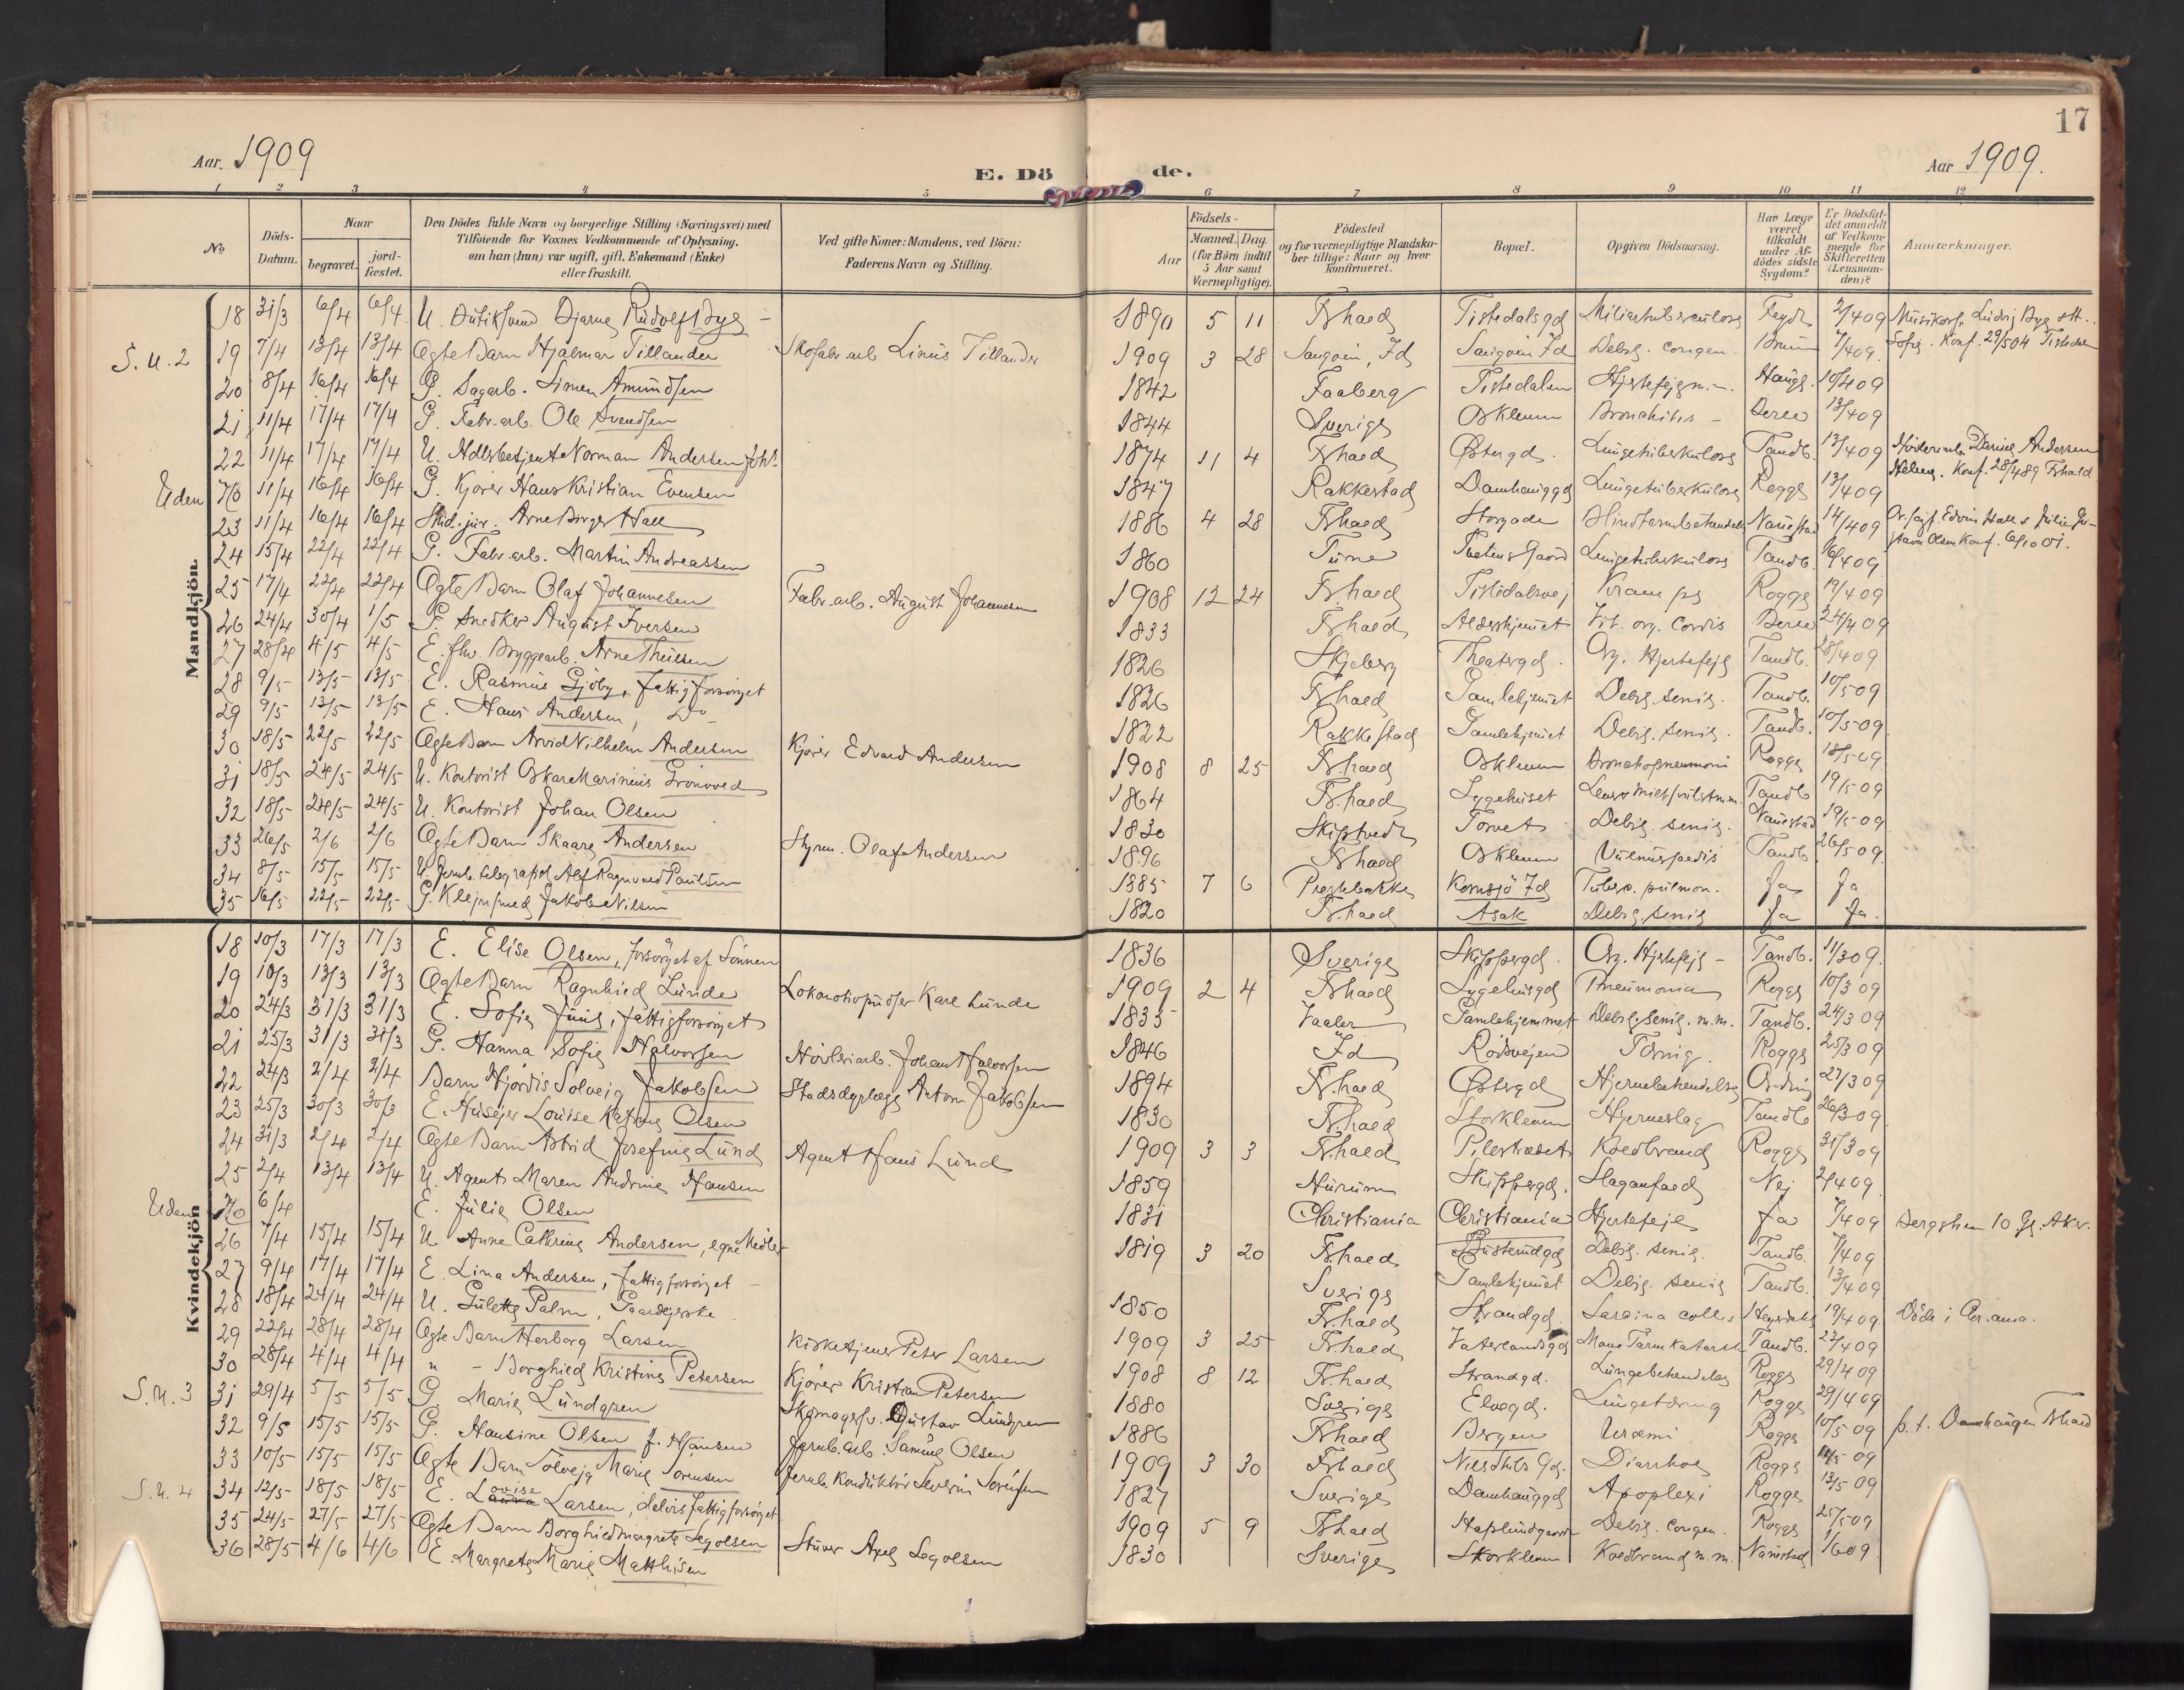 17
Aar 1909
E. Dö de.
Aar 1909.
1 2 3 4 5 6 7 8 9 10 11 12
No
Döds-Datum.
Naar
begravet.
jord-fæstet.
Den Dödes fulde Navn og borgerlige Stilling (Næringsvei) med
Tilföiende for Voxnes Vedkommende af Oplysning,
om han (hun) var ugift, gift, Enkemand (Enke)
eller fraskilt.
Ved gifte Koner: Mandens, ved Börn:
Faderens Navn og Stilling.
Födsels-
Aar
Maaned. Dag.
(for Börn indtil
5 Aar samt
Værnepligtige).
Födested
og for værnepligtige Mandska-
ber tillige: Naar og hvor
Konfirmeret.
Bopæl.
Opgiven Dödsaarsag.
Har Læge
været
tilkaldt
under Af-
dödes sidste
Sygdom?
Er Dödsfal-
det anmeldt
af Vedkom-
mende for
Skifteretten
(Lensman-
den)?
Anmærkninger.
Mandkjön.
18 31/3 6/4 6/4 U. Bjarne Rudolf Bye 1890 5 11 Fr.hald Tistedalsgd Miliærtuberculose 2/4 09
S. U. 2 19 7/4 13/4 13/4 Ægte Barn Hjalmar Tillander Skofabr.arb. Linus Tillander 1909 3 28 Id Id Debil. congen. 7/4 09 Konf. 29/5 04
20 8/4 16/4 16/4 G. Sagarb. Simen Amundsen 1842 Faaberg Tistedalen Hjertefejl m.m. 10/4 09
21 11/4 17/4 17/4 G. Fabr.arb. Ole Svendsen 1844 Sverige Oskleven Bronchitis 13/4 09
22 11/4 17/4 17/4 U. Norman Andersen 1874 11 4 Fr.hald Østergd. Lungetuberkulose Tandb. 13/4 09 Andersen
Uden No 11/4 16/4 16/4 G. Kjører Hans Kristian Evensen 1847 Rakkestad Damhauggd Lungetuberkulose Rogge 13/4 09 Konf. 28/4 89 Fr.hald
23 11/4 16/4 16/4 Stud. jur. Arne Birger Hall 1886 4 28 Fr.hald Storgaden Blindtarmbetændelse 14/4 09 Edvin Hall & Julie
24 15/4 22/4 22/4 G. Fabr.arb. Martin Andreassen 1860 Tune Lungetuberkulose Tandb. 16/4 09 Olsen Konf. 6/10 01.
25 17/4 22/4 22/4 Ægte Barn Olaf Johannesen Fabr.arb. August Johannesen 1908 12 24 Fr.hald Tistedalsvej Krampe Rogge 19/4 09
26 24/4 30/4 1/5 G. Snedker August Iversen 1833 Fr.hald Aldershjemmet Vit. org. Cordis 24/4 09
27 28/4 4/5 4/5 E. fhv. Bryggearb. Arne Theisen 1826 Skjeberg Theatergd. Org. Hjertefejl Tandb. 28/4 09
28 9/5 13/5 13/5 E. Rasmus Gjöby, fattigforsörget 1826 Fr.hald Gamlehjemmet Debil. senil. Tandb. 10/5 09
29 9/5 13/5 13/5 E. Hans Andersen, Do 1822 Rakkestad Gamlehjemmet Debil. senil. Tandb. 10/5 09
30 18/5 22/5 22/5 Ægte Barn Arvid Vilhelm Andersen Kjører Edvard Andersen 1908 8 25 Fr.hald Oskleven Bronchopneumoni Rogge 18/5 09
31 18/5 24/5 24/5 U. Kontorist Oskar Marinius Grönvold 1864 Fr.hald Sygehuset Tandb 19/5 09
32 18/5 24/5 24/5 U. Kontorist Johan Olsen 1830 Skiptvedt Torvet Debil. senil. 19/5 09
33 26/5 2/6 2/6 Ægte Barn Skaare Andersen Styrm. Olaf Andersen 1896 Fr.hald Oskleven Vulnus pedis Tandb 26/5 09
34 8/5 15/5 15/5 U. Jernb. telegrafist Alf Ragnvald Paulsen 1885 7 6 Præstebakke Kornsjö Id Tuberc. pulmon. Ja Ja
35 16/5 22/5 22/5 G. Klejnsmed Jakob Nilsen 1820 Fr.hald Asak Debil. senil Ja Ja.
Kvindekjön
18 10/3 17/3 17/3 E. Elise Olsen, forsörget af Sönnen 1836 Sverige Skippergd. Org. Hjertefejl Tandb. 11/3 09
19 10/3 13/3 13/3 Ægte Barn Ragnhild Lunde Lokomotivpudser Karl Lunde 1909 2 4 Fr.hald Sygehusgd Pneumonia Rogge 10/3 09
20 24/3 31/3 31/3 E. Sofie Juul, fattigforsörget 1835 Vaaler Gamlehjemmet Debil. senil. m.m. Tandb. 24/3 09
21 25/3 31/3 31/3 G. Hanna Sofie Halvorsen Hövleriarb. Johan Halvorsen 1846 Id Rödsvejen Tæring. Rogge 25/3 09
22 24/3 2/4 2/4 Barn Hjördis Solveig Jakobsen Stadsdyrlæge Anton Jakobsen 1894 Fr.hald Østergd Hjernebetændelse 27/3 09
23 25/3 30/3 30/3 E. Husejer Louise Katrine Olsen 1830 Fr.hald Storkleven Hjerneslag Tandb 26/3 09
24 31/3 2/4 2/4 Ægte Barn Astrid Josefine Lund Agent Hans Lund 1909 3 3 Fr.hald Pilestrædet Koldbrand Rogge 31/3 09
25 2/4 13/4 13/4 U. Agent Maren Andrine Hansen 1859 Hurum Skippergd. Slaganfald Nej 2/4 09
Uden No 6/4 E. Julie Olsen 1831 Christiania Christiania Hjertefejl Ja 7/4 09 Bergshen 10 Gr. Akr.
26 7/4 15/4 15/4 U Anne Cathrine Andersen, egne Midler 1819 3 20 Fr.hald Debil. senil. Tandb. 7/4 09
27 9/4 17/4 17/4 E. Lina Andersen, fattigforsörget Sverige Gamlehjemmet Debil. senil Tandb. 13/4 09
28 18/4 24/4 24/4 U. Gulette Palm, Gaardejerske 1850 Fr.hald Strandgd. 19/4 09 Döde i Kr.ania.
29 22/4 28/4 28/4 Ægte Barn Herborg Larsen Kirketjener Peter Larsen 1909 3 25 Fr.hald Vaterlandsgd Mave Tarmkatarrh Tandb. 23/4 09
30 28/4 4/4 4/4 " - Borghild Kristine Petersen Kjører Kristian Petersen 1908 8 12 Fr.hald Strandgd. Lungebetændelse Rogge 29/4 09
S. U. 3 31 29/4 5/5 5/5 G Marie Lundgren Skomagersv. Gustav Lundgren 1880 Sverige Elvegd. Lungetæring Rogge 29/4 09
32 9/5 15/5 15/5 G. Hansine Olsen f. Hansen Jernb.arb. Samuel Olsen 1886 Fr.hald Bergen Uræmi Rogge 10/5 09 p. t. Damhaugen Fr.hald
33 10/5 15/5 15/5 Ægte Barn Solvejg Marie Sörensen Jernb. Konduktör Severin Sörensen 1909 3 30 Fr.hald Diarrhoe Rogge 11/5 09
S. U. 4 34 12/5 18/5 18/5 E. Lovise Larsen, delvis fattigforsörget 1827 Sverige Damhauggd Apoplexi Rogge 13/5 09
35 24/5 27/5 27/5 Ægte Barn Borghild Margrete Segolsen Stuver Axel Segolsen 1909 5 9 Fr.hald Debil. congen. Rogge 25/5 09
36 28/5 4/6 4/6 E. Margrete Marie Matthisen 1830 Sverige Storkleven Koldbrand m.m. 1/6 09